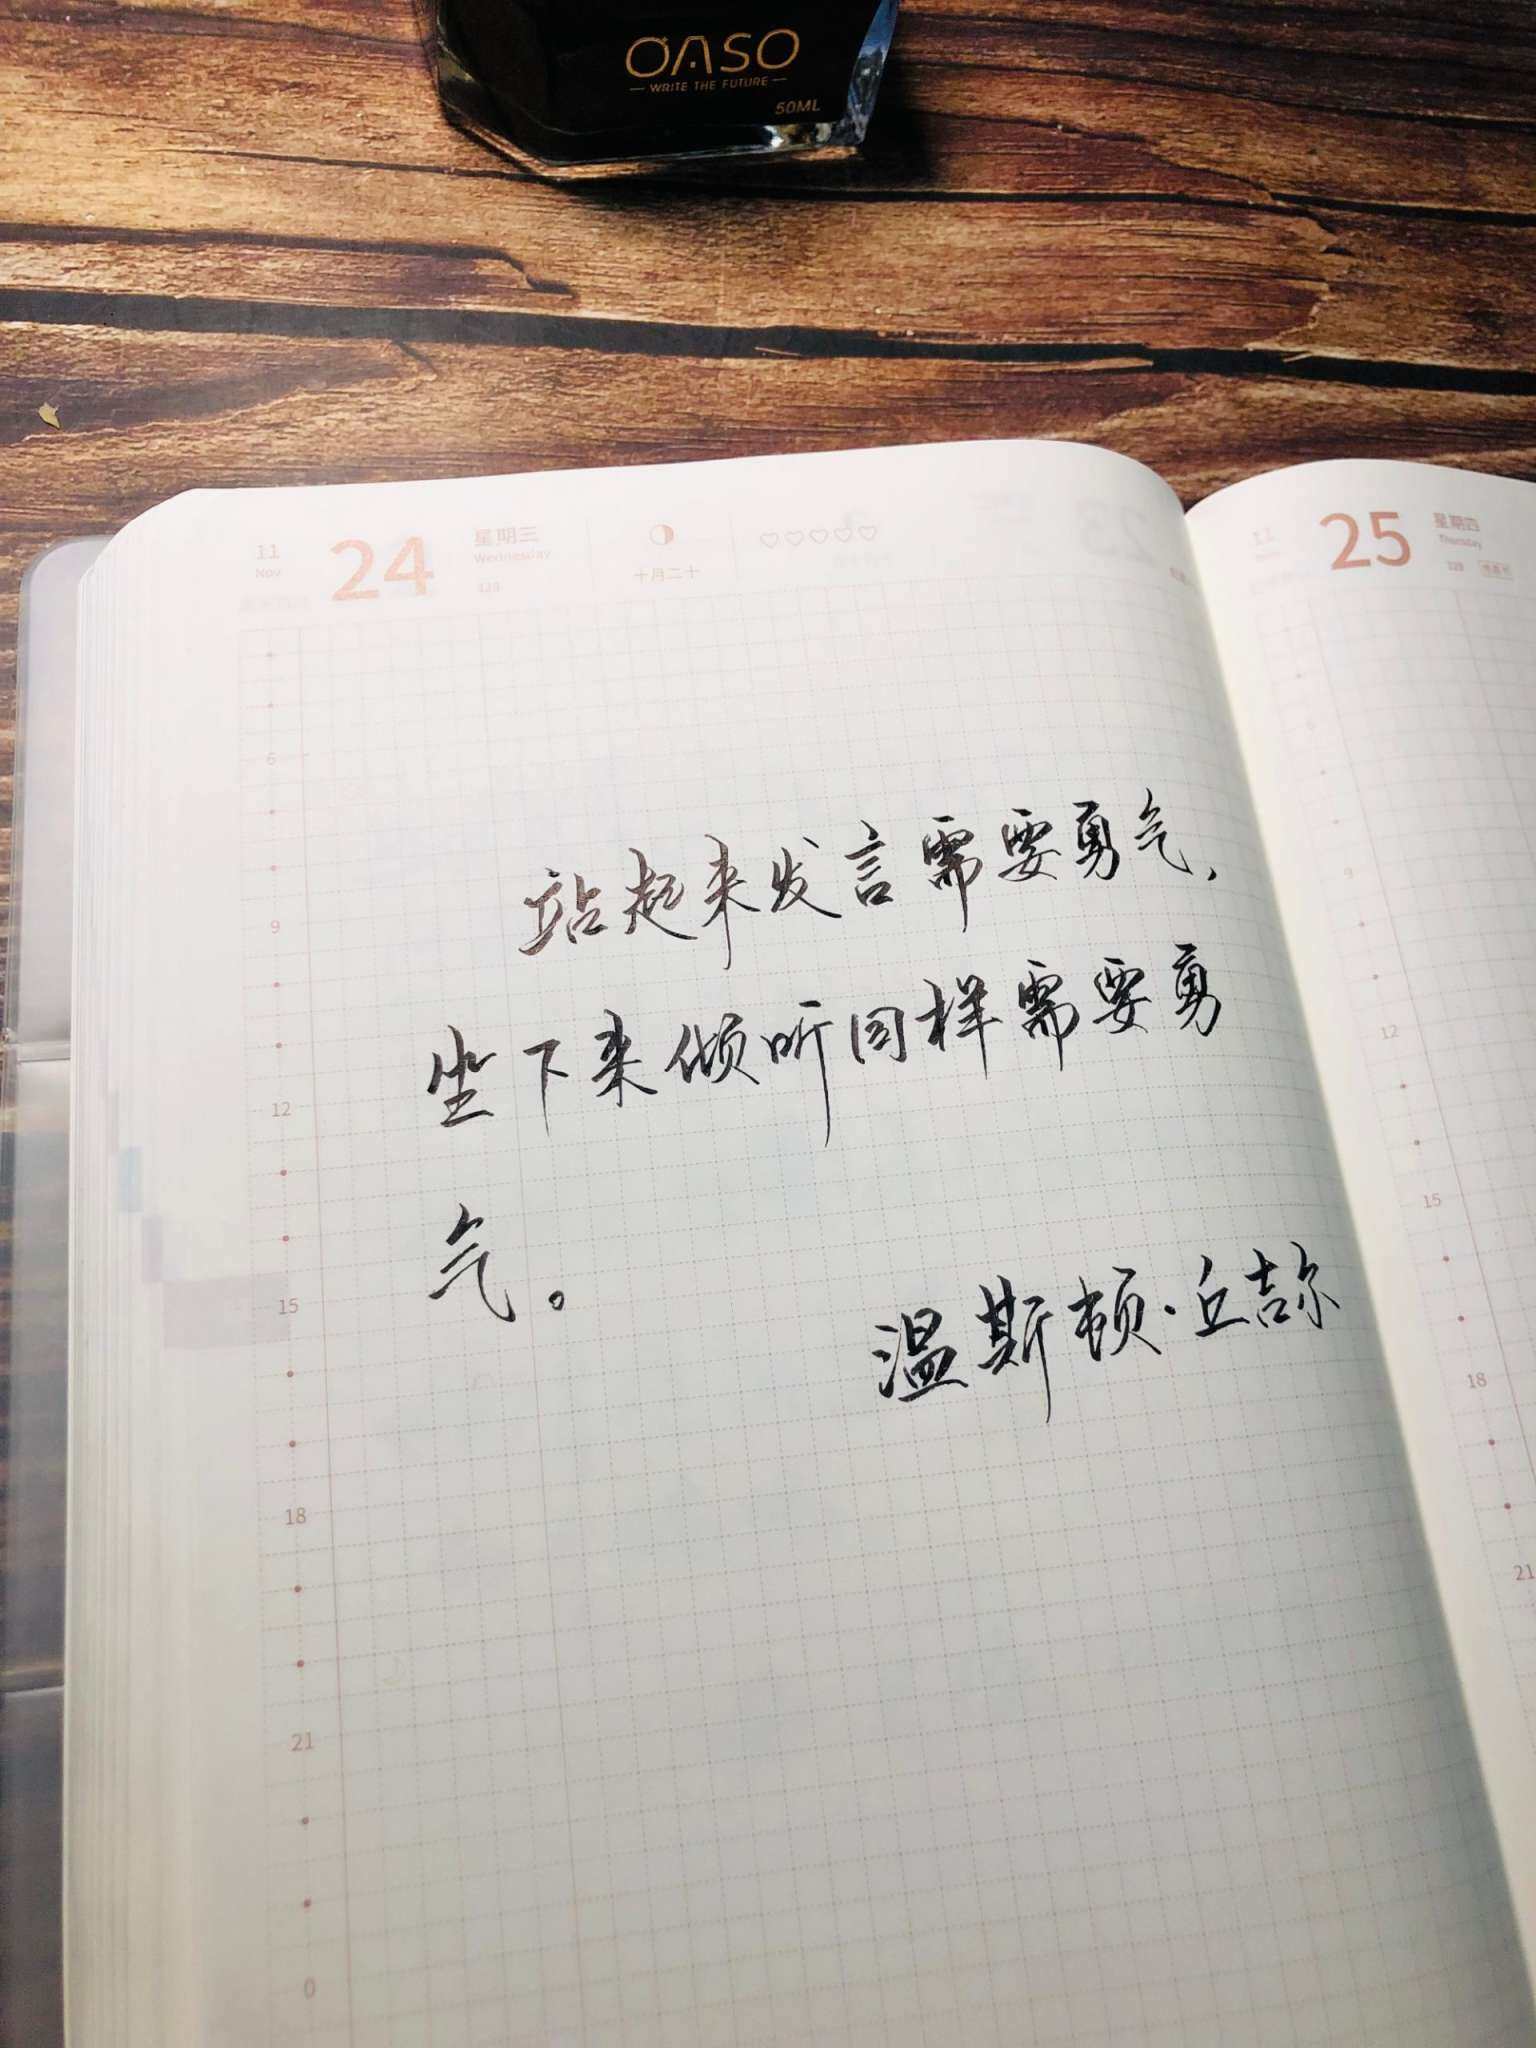 OASO
WRITE THE FUTURE
50ML
11
Nov
24
星期三
Wednesday
十月二十
11
25
星期四
Thursday
站起来发言需要勇气,
坐下来倾听同样需要勇
气。
温斯顿·丘吉尔
6
9
12
15
18
21
0
9
12
15
18
21